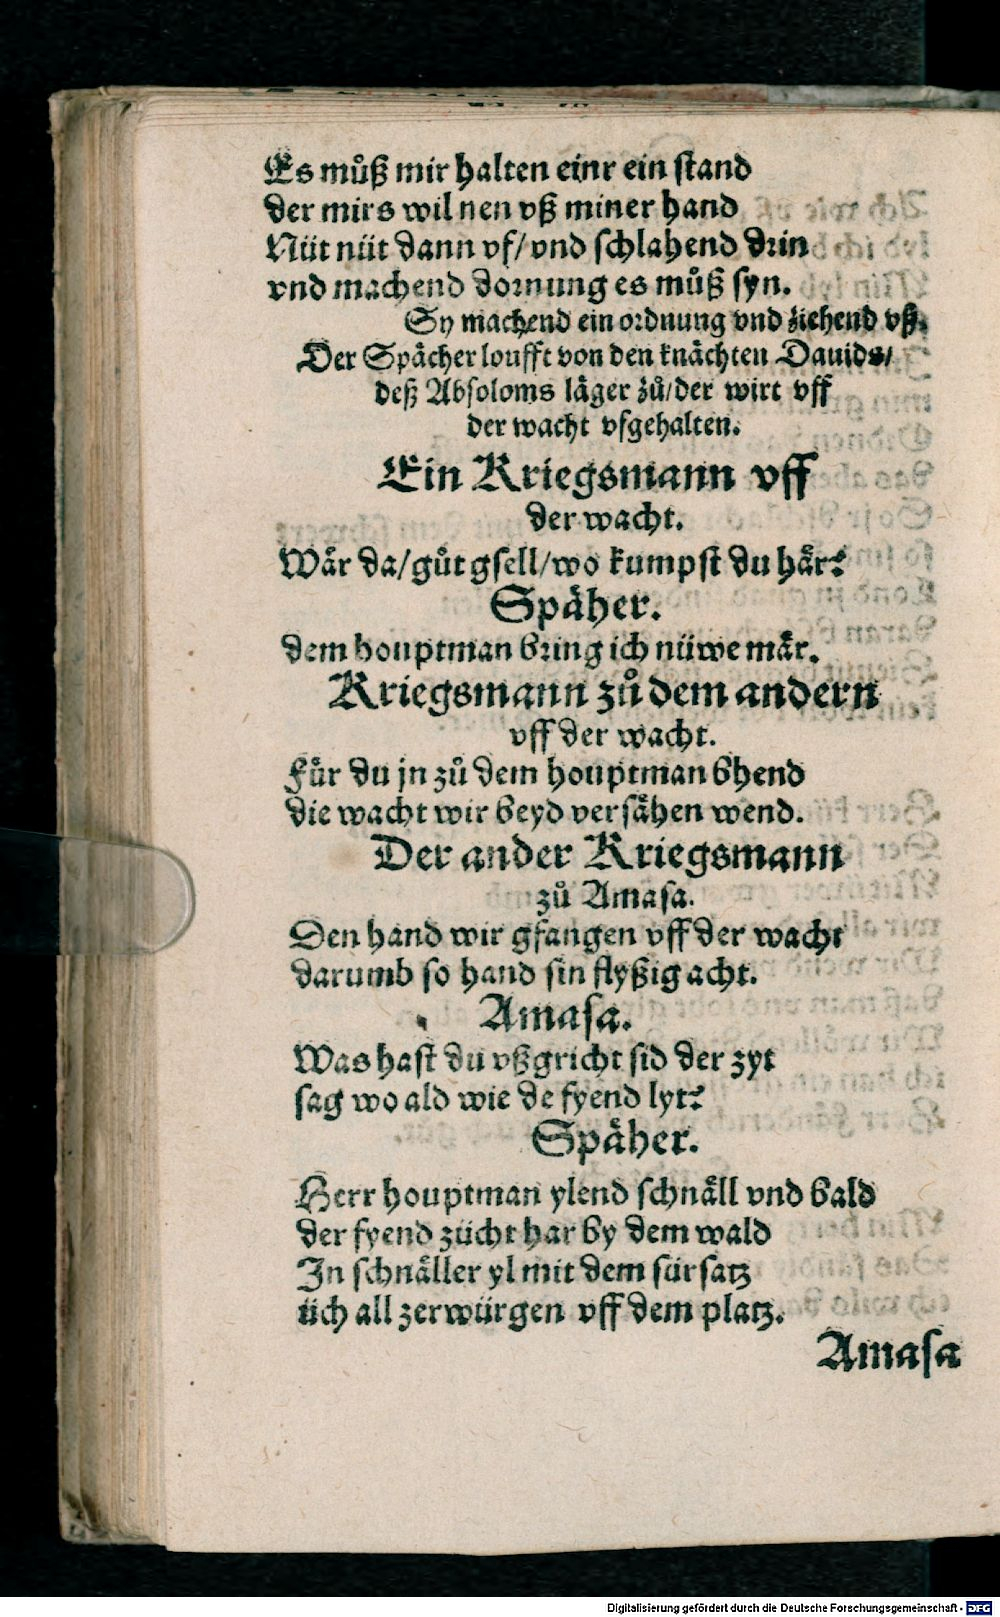 Es muͦß mir halten einr ein stand
der mirs wil nen vß miner hand
Nüt nüt dann vf/vnd schlahend drin
vnd machend dornung es muͦß syn.
Sy machend ein ordnung vnd ziehend vß.
Der Spächer loufft von den knächten Dauids/
deß Absoloms läger zuͦ/der wirt vff
der wacht vfgehalten.
Ein Kriegsmann vff
der wacht.
Wär da/guͦt gsell/wo kumpst du här?
Späher.
dem houptman bring ich nüwe mär.
Kriegsmann zuͦ dem andern
vff der wacht.
Für du jn zuͦ dem houptman bhend
die wacht wir beyd versähen wend.
Der ander Kriegsmann
zuͦ Amasa.
Den hand wir gfangen vff der wacht
darumb so hand sin flyßig acht.
Amasa.
Was hast du vßgricht sid der zyt
sag wo ald wie de fyend lyt?
Späher.
Herr houptman ylend schnäll vnd bald
der fyend zücht har by dem wald
In schnäller yl mit dem fürsatz
üch all zerwürgen vff dem platz.
Amasa
Digitalisierung gefördert durch die Deutsche Forschungsgemeinschaft - DFG